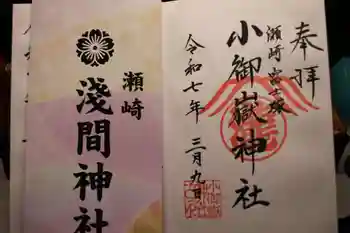 奉拝
瀬崎富士塚
小御嶽神社
令和七年三月九日
瀬崎
淺間神社